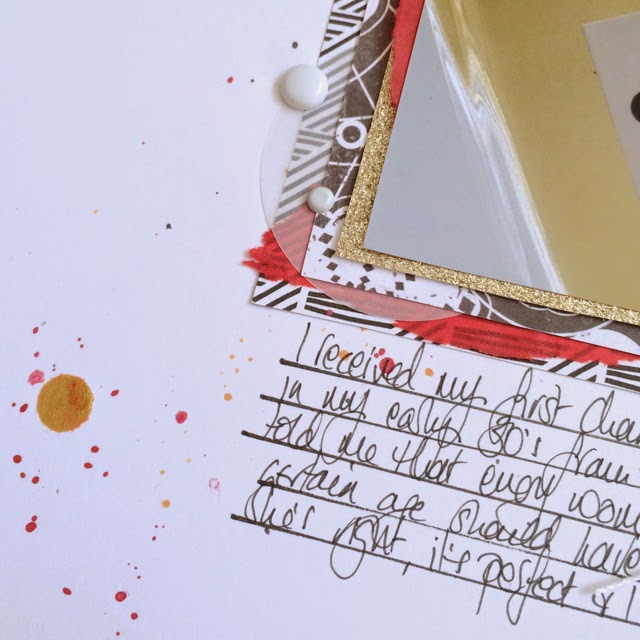 I received my first chan
in my early 30's from
told me that every wom
certain age should have
She's right, it's perfect & I